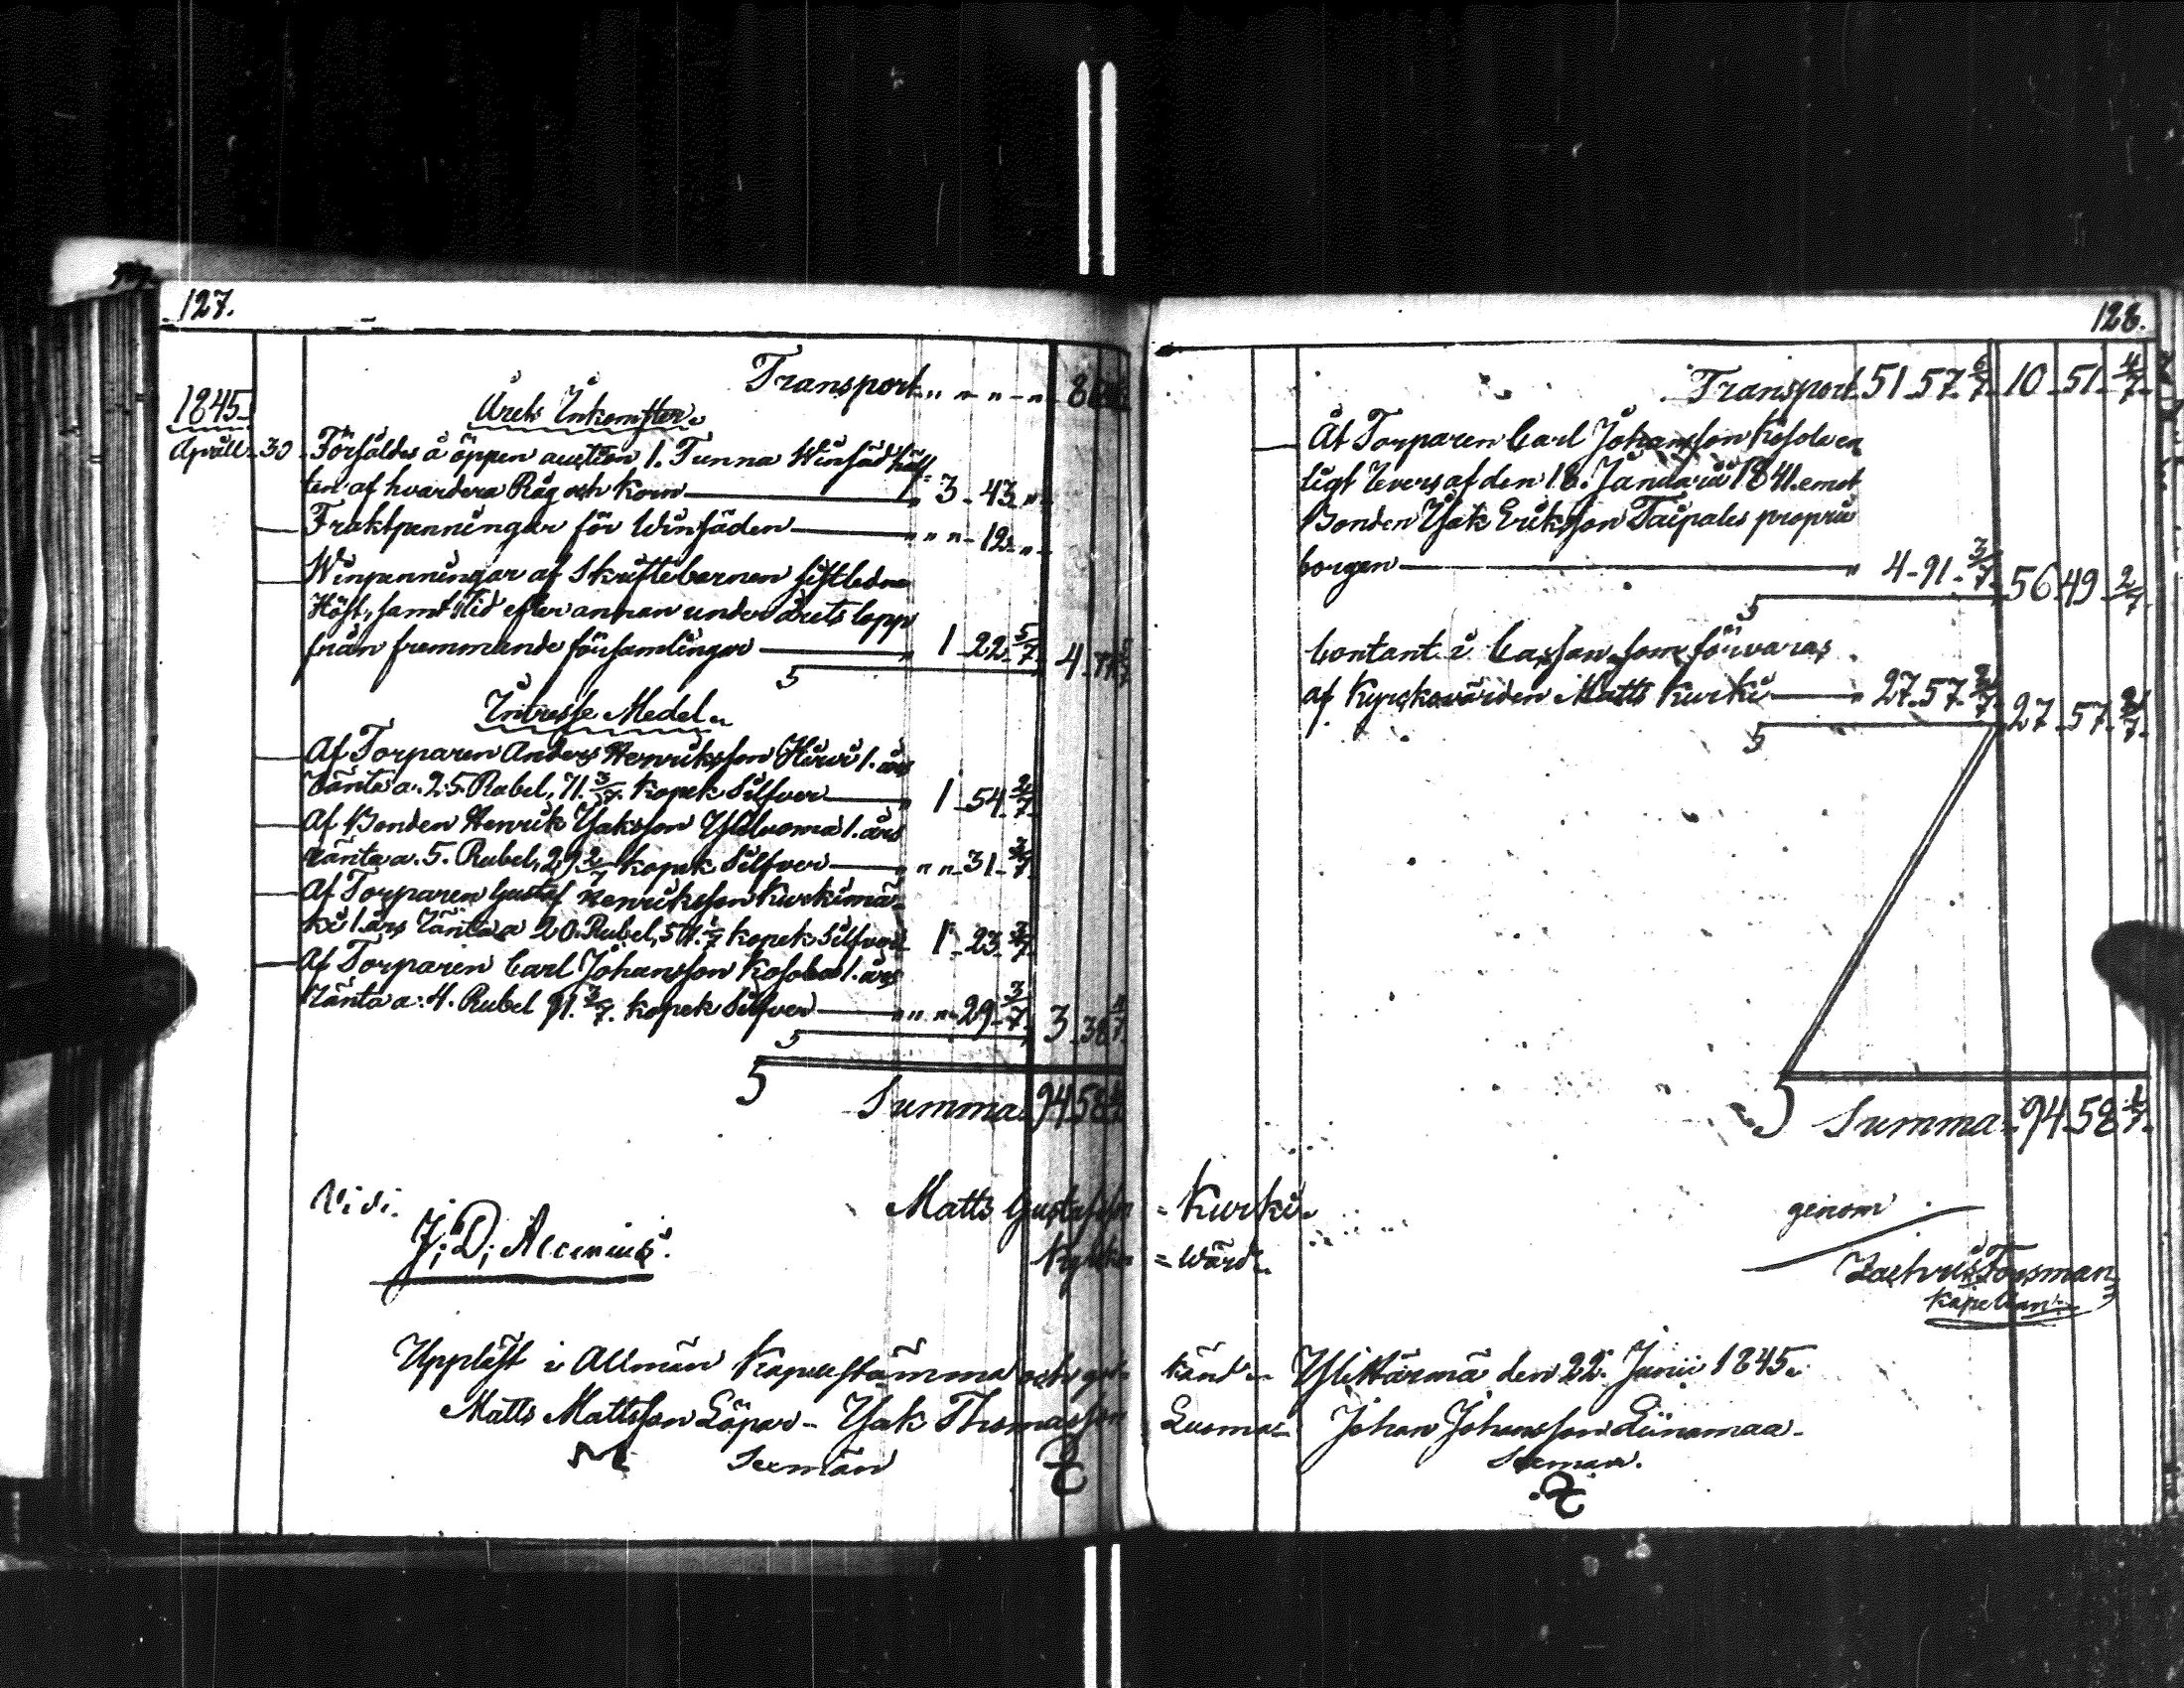 127.
Transport " " " " 86
1845.
Årets Inkomster.
Aprill 30 Försåldes å öppen auction 1. Tunna Winsäd hälf-
ten af hvardera Råg och Korn " 3 43 "
Fraktpenningar för Winsäden " " " 12 "
Winpenningar af Skriftebarnen sistledne
Höst, samt tid efter annan under årets lopp
från fremmande församlingar " 1 22 5/7 4 77 5/7
Intresse Medel.
Af Torparen Anders Henriksson Hirvi 1. års
Ränta a. 25. Rubel, 71. 3/7. Kopek Silfver " 1 54 2/7
Af Bonden Henrik Isaksson Yliluoma 1. års
ränta a. 5. Rubel, 29 2/7 kopek Silfver " " 31 2/7
Af Torparen Gustaf Henriksson Kurkimä-
ki 1. års Ränta a 20. Rubel, 57 1/7 kopek Silfver 1 23 3/7
Af Torparen Carl Johansson Kosola 1. års
Ränta a. 4. Rubel 91. 3/7. kopek Silfver " " " 29 3/7 3 38 4/7
Summa 94 58 1/7
Vidi.
J. D. Alcenius.
Matts Gustafsson = Kurki
Kyrko = Wärd
128.
Transport 51 57 6/7 10 51 4/7
Åt Torparen Carl Johansson Kosola en
ligt Revers af den 18. Januarii 1841. emot
Bonden Isak Eriksson Taipales proprie
borgen " 4 91 3/7 56 49 2/7
Contant i Cassan som förvaras
af Kyrkovärden Matts Kurki " 27 57 2/7 27 57 2/7
Summa 94 58 1/7
genom
Zachris Forsman
Kapellan
Uppläst i Allmän Kapellstämma och god- känd. Ylihärmä den 22. Junii 1845.
Matts Mattsson Löpar - Isak Thomasson Luoma - Johan Johansson Liinamaa -
Sexmän Sexman.